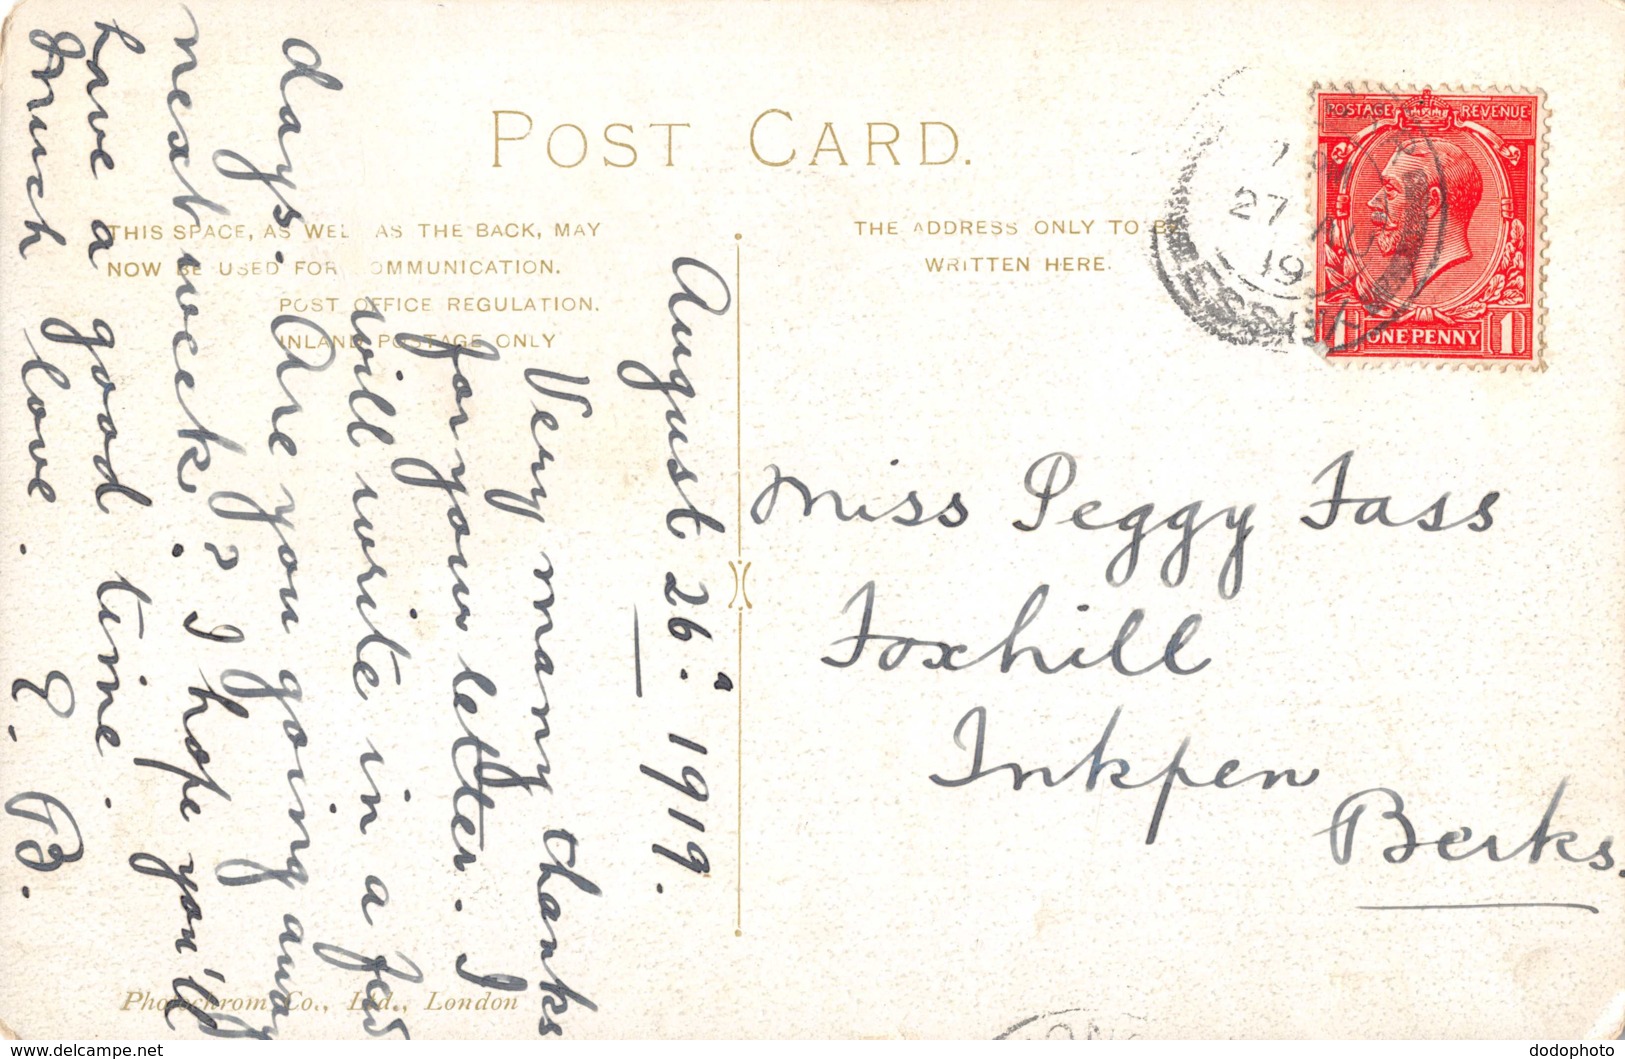 POST CARD.
THIS SPACE, AS WELL AS THE BACK, MAY
NOW BE USED FOR COMMUNICATION.
POST OFFICE REGULATION.
INLAND POSTAGE ONLY
THE ADDRESS ONLY TO BE
WRITTEN HERE.
POSTAGE REVENUE
1 ONE PENNY 1
27 AU
19
August 26th. 1919.
Very many thanks
for your letter. I
will write in a few
days. Are you going away
next week? I hope you'll
have a good time.
Much love. E. B.
Miss Peggy Fass
Foxhill
Inkpen
Berks.
Photochrom Co., Ltd., London
delcampe.net
dodophoto